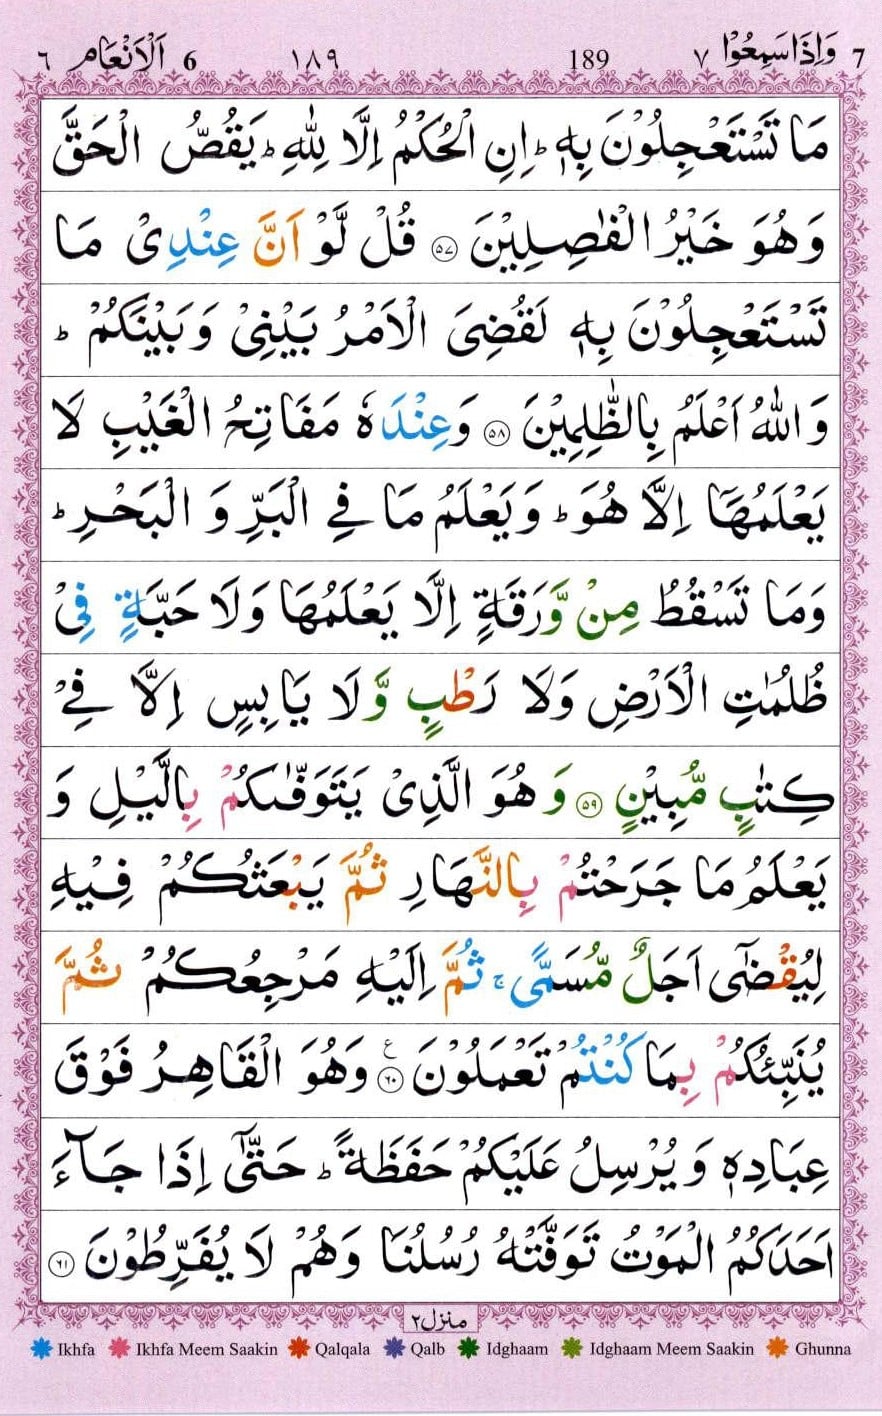 7 وَاِذَاسَمِعُوْا ٧ 189 ١٨٩ 6 اَلْاَنْعَام ٦
مَا تَسْتَعْجِلُوْنَ بِهٖؕ اِنِ الْحُكْمُ اِلَّا لِلّٰهِؕ يَقُصُّ الْحَقَّ
وَهُوَ خَيْرُ الْفٰصِلِيْنَ ﴿٥٧﴾ قُلْ لَّوْ اَنَّ عِنْدِىْ مَا
تَسْتَعْجِلُوْنَ بِهٖ لَقُضِىَ الْاَمْرُ بَيْنِىْ وَبَيْنَكُمْؕ
وَاللّٰهُ اَعْلَمُ بِالظّٰلِمِيْنَ ﴿٥٨﴾ وَعِنْدَهٗ مَفَاتِحُ الْغَيْبِ لَا
يَعْلَمُهَاۤ اِلَّا هُوَؕ وَيَعْلَمُ مَا فِى الْبَرِّ وَ الْبَحْرِؕ
وَمَا تَسْقُطُ مِنْ وَّرَقَةٍ اِلَّا يَعْلَمُهَا وَلَا حَبَّةٍ فِىْ
ظُلُمٰتِ الْاَرْضِ وَلَا رَطْبٍ وَّلَا يَابِسٍ اِلَّا فِىْ
كِتٰبٍ مُّبِيْنٍ ﴿٥٩﴾ وَ هُوَ الَّذِىْ يَتَوَفّٰٮكُمْ بِالَّيْلِ وَ
يَعْلَمُ مَا جَرَحْتُمْ بِالنَّهَارِ ثُمَّ يَبْعَثُكُمْ فِيْهِ
لِيُقْضٰٓى اَجَلٌ مُّسَمًّىۚ ثُمَّ اِلَيْهِ مَرْجِعُكُمْ ثُمَّ
يُنَبِّئُكُمْ بِمَا كُنْتُمْ تَعْمَلُوْنَ ﴿٦٠﴾ ع وَهُوَ الْقَاهِرُ فَوْقَ
عِبَادِهٖ وَ يُرْسِلُ عَلَيْكُمْ حَفَظَةًؕ حَتّٰٓى اِذَا جَآءَ
اَحَدَكُمُ الْمَوْتُ تَوَفَّتْهُ رُسُلُنَا وَهُمْ لَا يُفَرِّطُوْنَ ﴿٦١﴾
منزل٢
Ikhfa Ikhfa Meem Saakin Qalqala Qalb Idghaam Idghaam Meem Saakin Ghunna